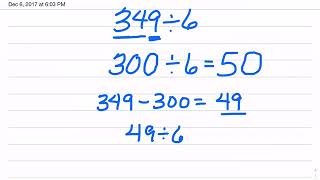 Dec 6, 2017 at 6:03 PM
349÷6
300÷6=50
349-300=49
49÷6